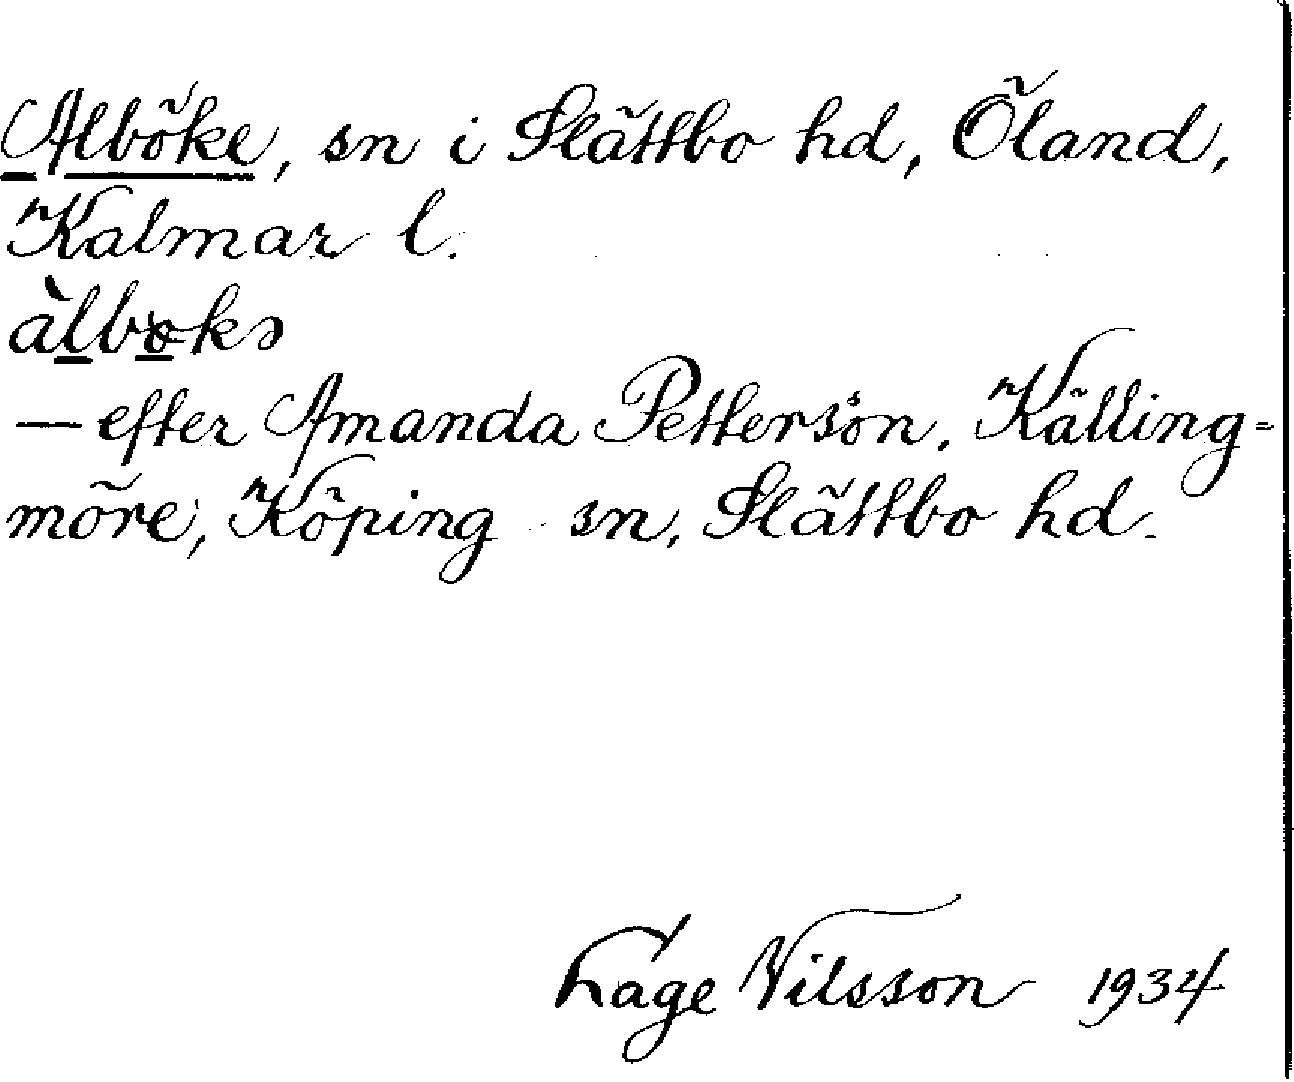 Alböke, sn i Slättbo hd, Öland,
Kalmar l.
àlbøkə
— efter Amanda Petterson, Källing-
möre, Köping sn, Slättbo hd.
Lage Nilsson 1934